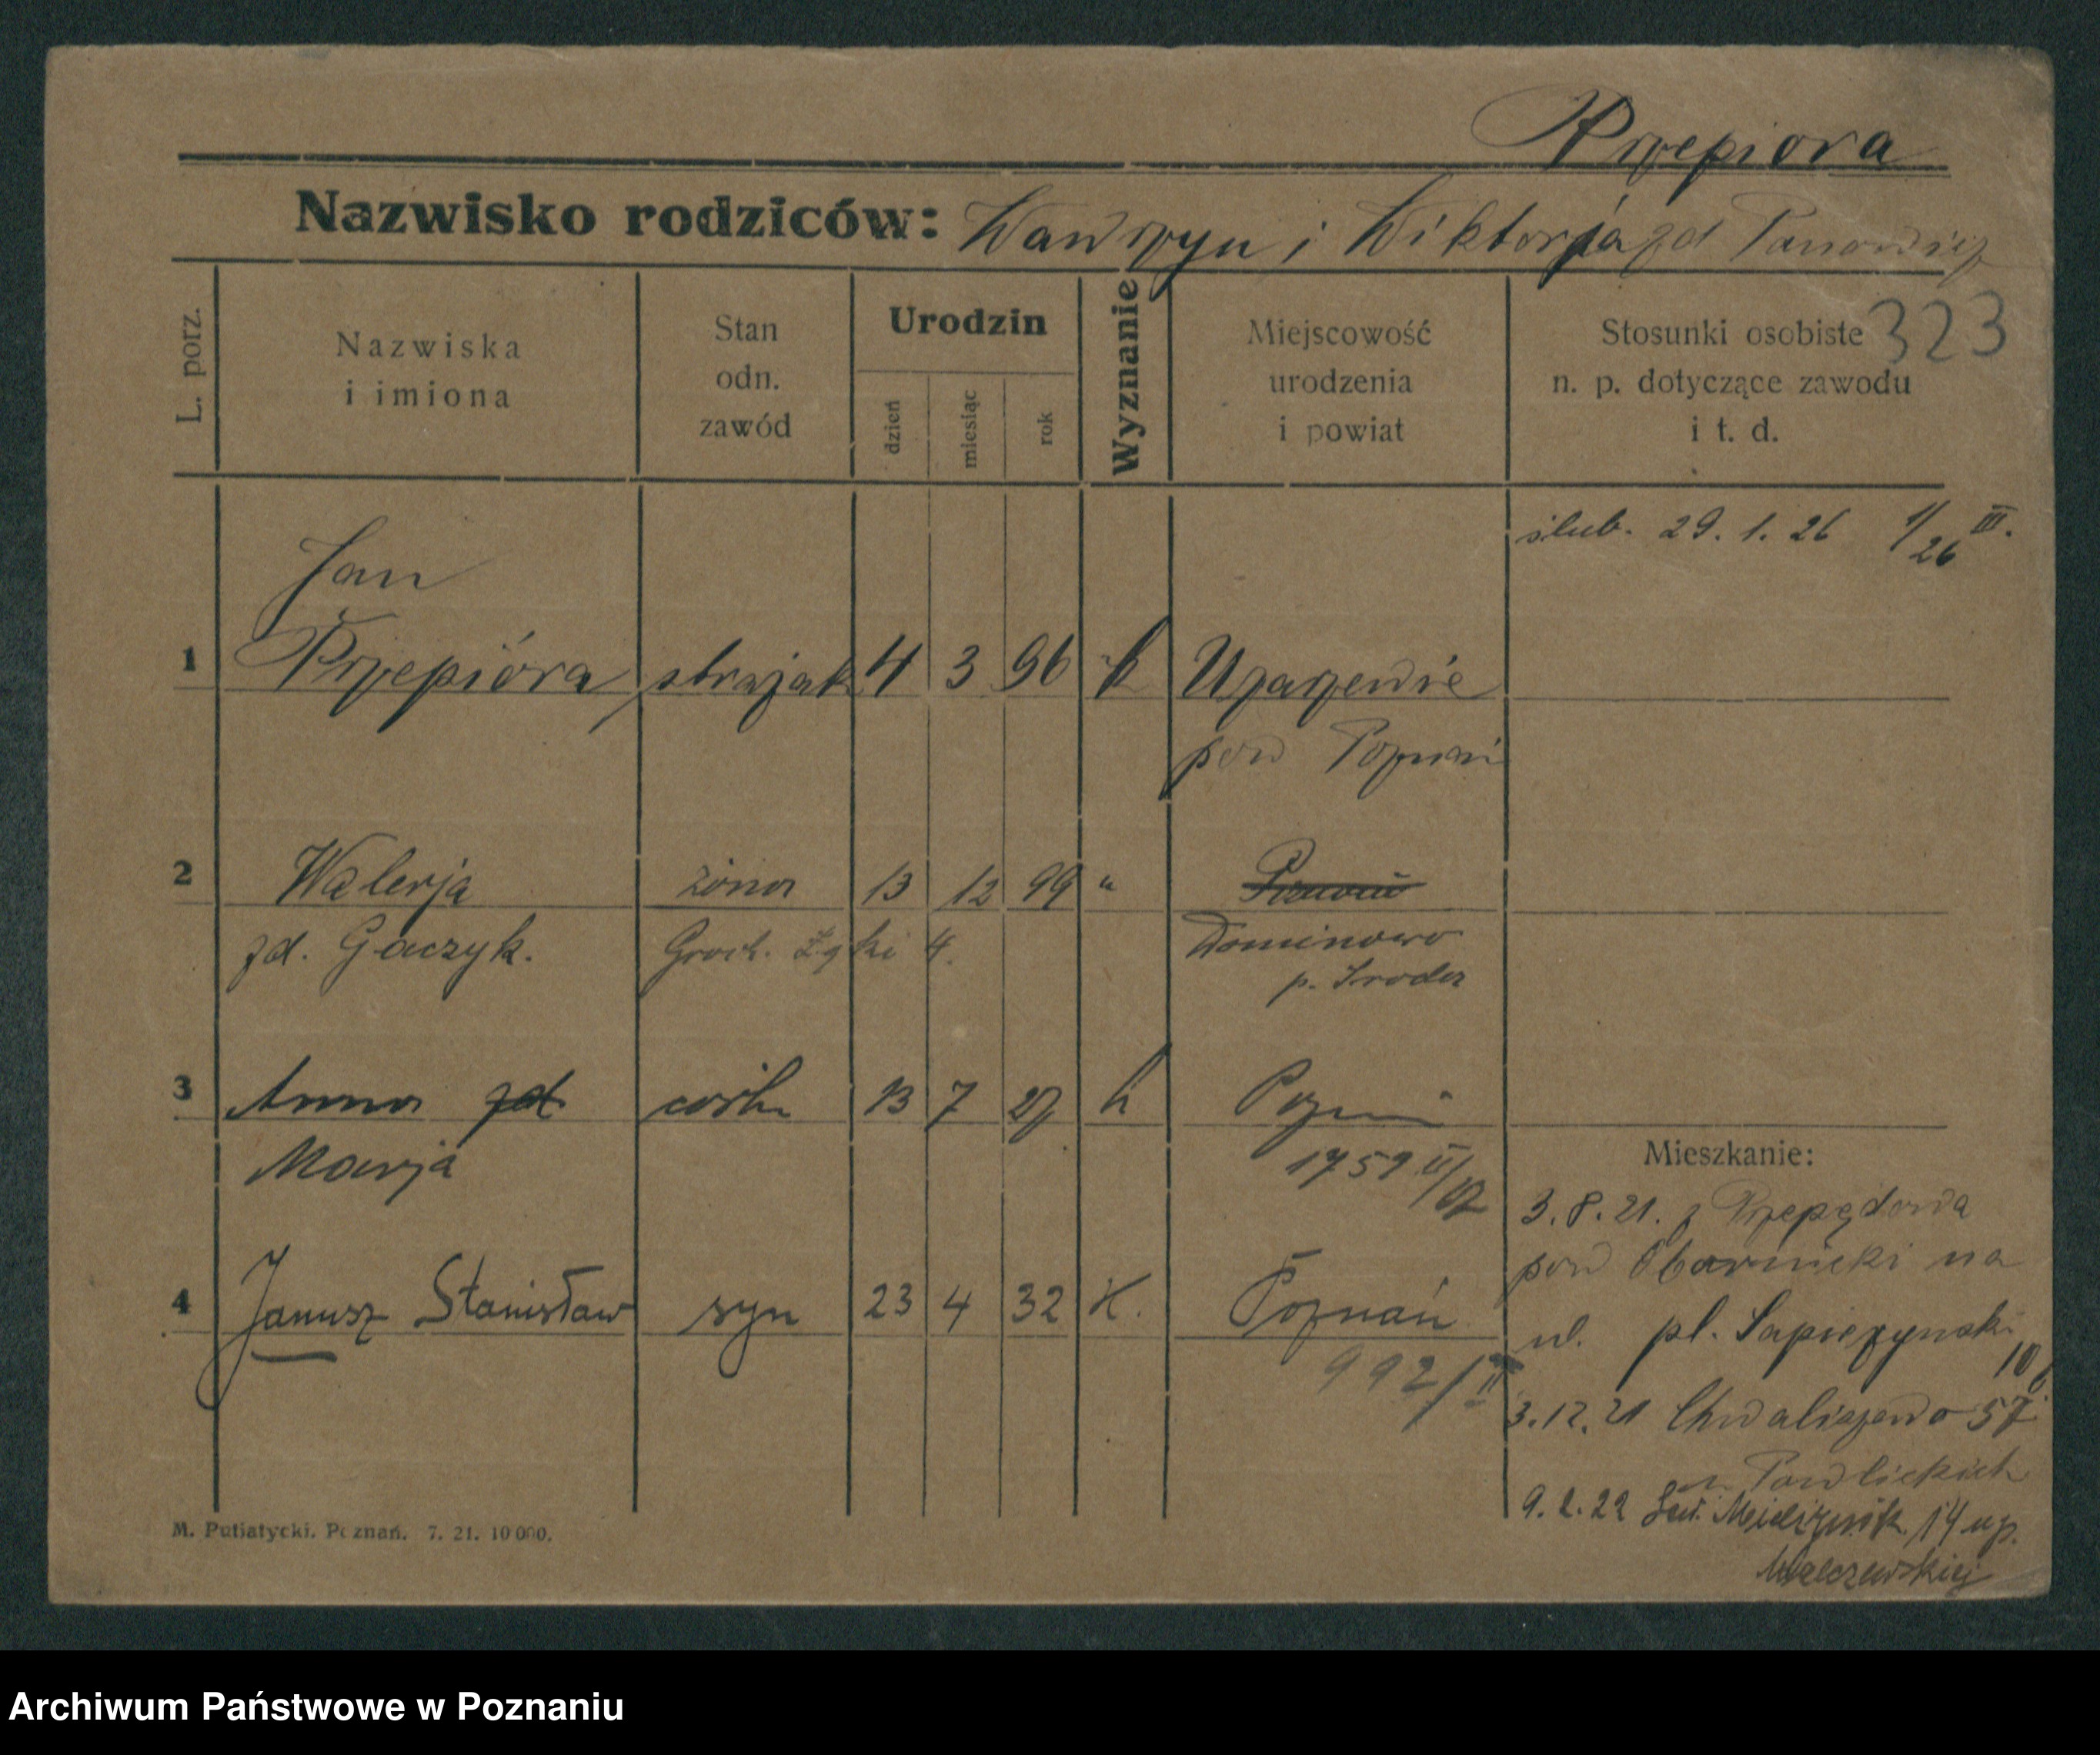 Przepiora
Nazwisko rodziców: Wawrzyn i Wiktorja zd
323
L. porz.
Nazwiska
i imiona
Stan
odn.
zawód
Urodzin
dzień
miesiąc
rok
Wyznanie
Miejscowość
urodzenia
i powiat
Stosunki osobiste
n. p. dotyczące zawodu
i t. d.
ślub. 29. 1. 26 1/26 III.
Jan
1 Przepióra 4 3 96 k Uzarzewie
pow Poznań
2 Walerja żona 13 12 99 "
zd. Gaczyk. Groch. Łąki 4. Dominowo
p. Sroda
3 Anna zd 13 7 27 k
Marja 1759 II/
4 Janusz Stanisław syn 23 4 32 K. Poznań
992/II
Mieszkanie:
3. 8. 21. z Przepędowa
pow Obornicki na
ul. pl. Sapieżynski
10b
3. 12. 21 Chwaliszewo 57
u Pawlickich
9. 2. 22 14 u p.
M. Putiatycki. Poznań. 7. 21. 10 000.
Archiwum Państwowe w Poznaniu